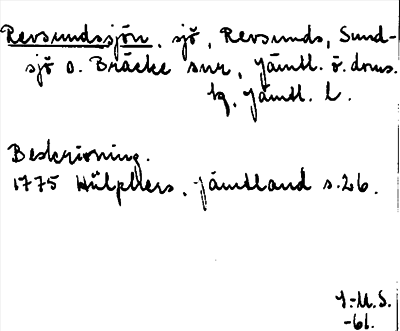 Revsundssjön, sjö, Revsunds, Sund-
sjö o. Bräcke snr, Jämtl. ö. doms.
hg, Jämtl. l.
Beskrivning.
1775 Hülphers, Jämtland s.26.
J.-M.S.
-61.